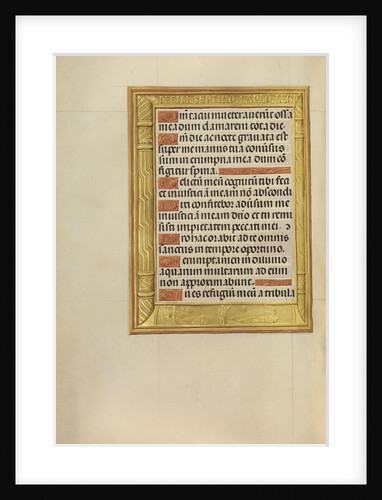 Qm̄ tacui inveteraverūt ossa
mea dum clamarem tota die
Qm̄ die ac nocte gravata est
super me manus tua conv̄sus
sum in erumpna mea dum cō
figitur spina
Delictū meū cognitū tibi fec
et iniusticiā meā nō abscondi
Dixi confitebor adv̄sum me
iniusticiā meam dn̄o et tu remi
sisti impietatem peccati mei
Pro hac orabit ad te omnis
sanctus in tempore oportuno
Verumptamen in diluvio
aquarum multarum ad eum
non approximabunt
Tu es refugiū meū a tribula